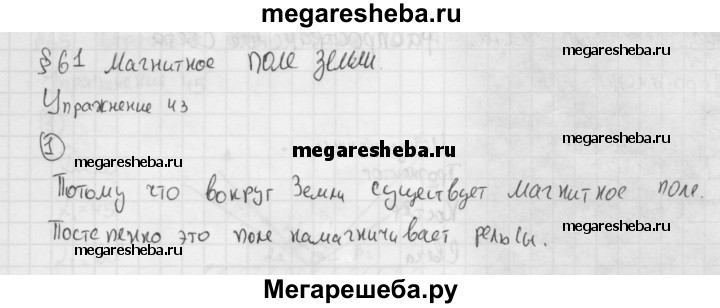 megaresheba.ru
§61 Магнитное поле Земли.
megaresheba.ru
Упражнение 43
megaresheba.ru
1
megaresheba.ru
megaresheba.ru
Потому что вокруг Земли существует магнитное поле.
megaresheba.ru
Постепенно это поле намагничивает рельсы.
megaresheba.ru
megaresheba.ru
Мегарешеба.ру